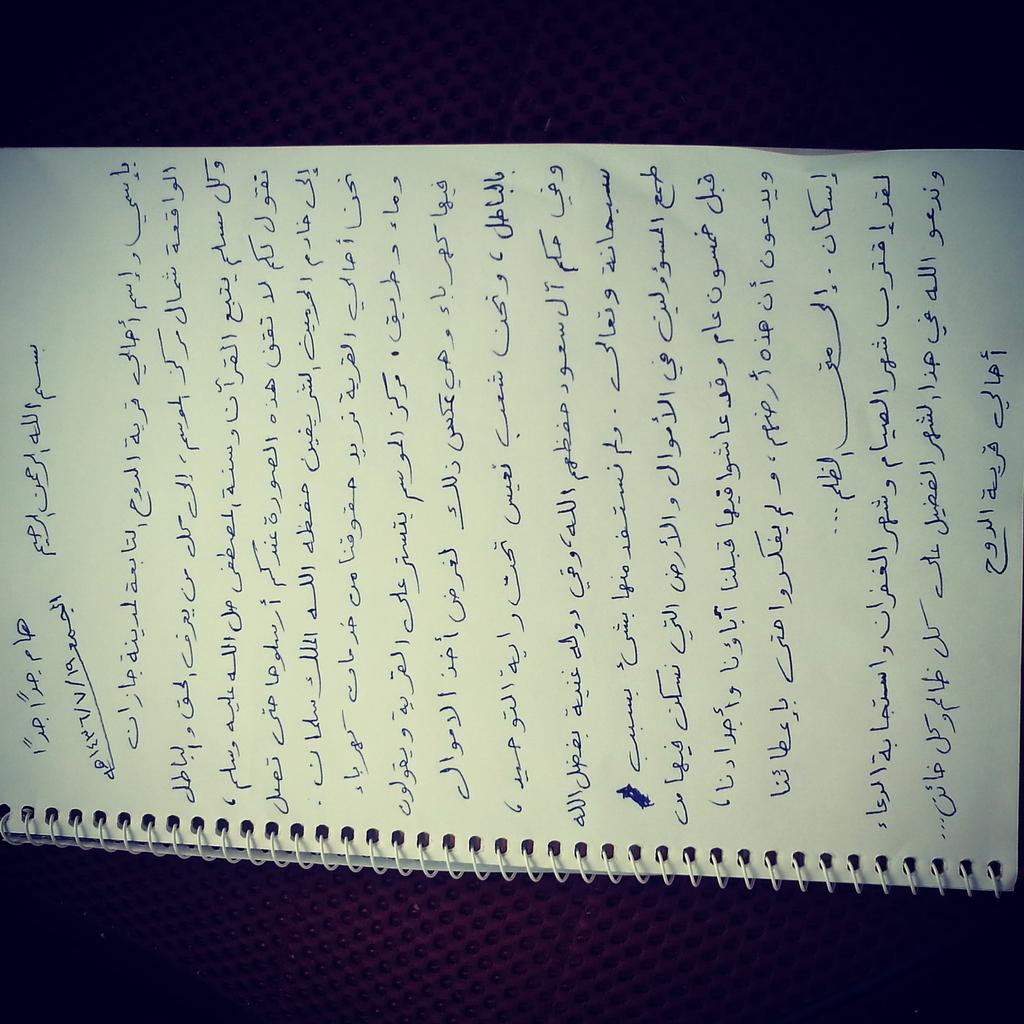 بسم الله الرحمن الرحيم
هام جداً جداً
الجمعه ١٤٣٦/٧/١٩هـ
بإسمي وإسم أهالي قرية الدوح التابعة لمدينة جازان
الواقعة شمال مركز الموسم، إلى كل من يعرف الحق والباطل
وكل مسلم يتبع القرآن وسنة المصطفى صل الله عليه وسلم،
نقول لكم لا تقف هذه الصورة عندكم أرسلوها حتى تصل
إلى خادم الحرمين الشريفين حفظه الله الملك سلمان.
نحن أهالي القرية نريد حقوقنا من خدمات كهرباء
وماء وطريق. مركز الموسم يتستر على القرية ويقولون
فيها كهرباء وهي عكس ذلك لغرض أخذ الاموال
بالباطل، ونحن شعب نعيش تحت راية التوحيد،
وفي حكم آل سعود حفظهم الله، وفي دوله غنية بفضل الله
سبحانة وتعالى. ولم نستفد منها بشئ بسبب
طمع المسؤولين في الأموال والأرض التي نسكن فيها من
قبل خمسون عام وقد عاشوا فيها قبلنا آباؤنا وأجدادنا،
ويدعون أن هذه أرضهم، ولم يفكروا حتى بإعطائنا
إسكان. إلى متى الظلم...
لقد إقترب شهر الصيام وشهر الغفران واستجابة الدعاء
وندعو الله في هذا الشهر الفضيل على كل ظالم وكل خائن...
أهالي قرية الدوح